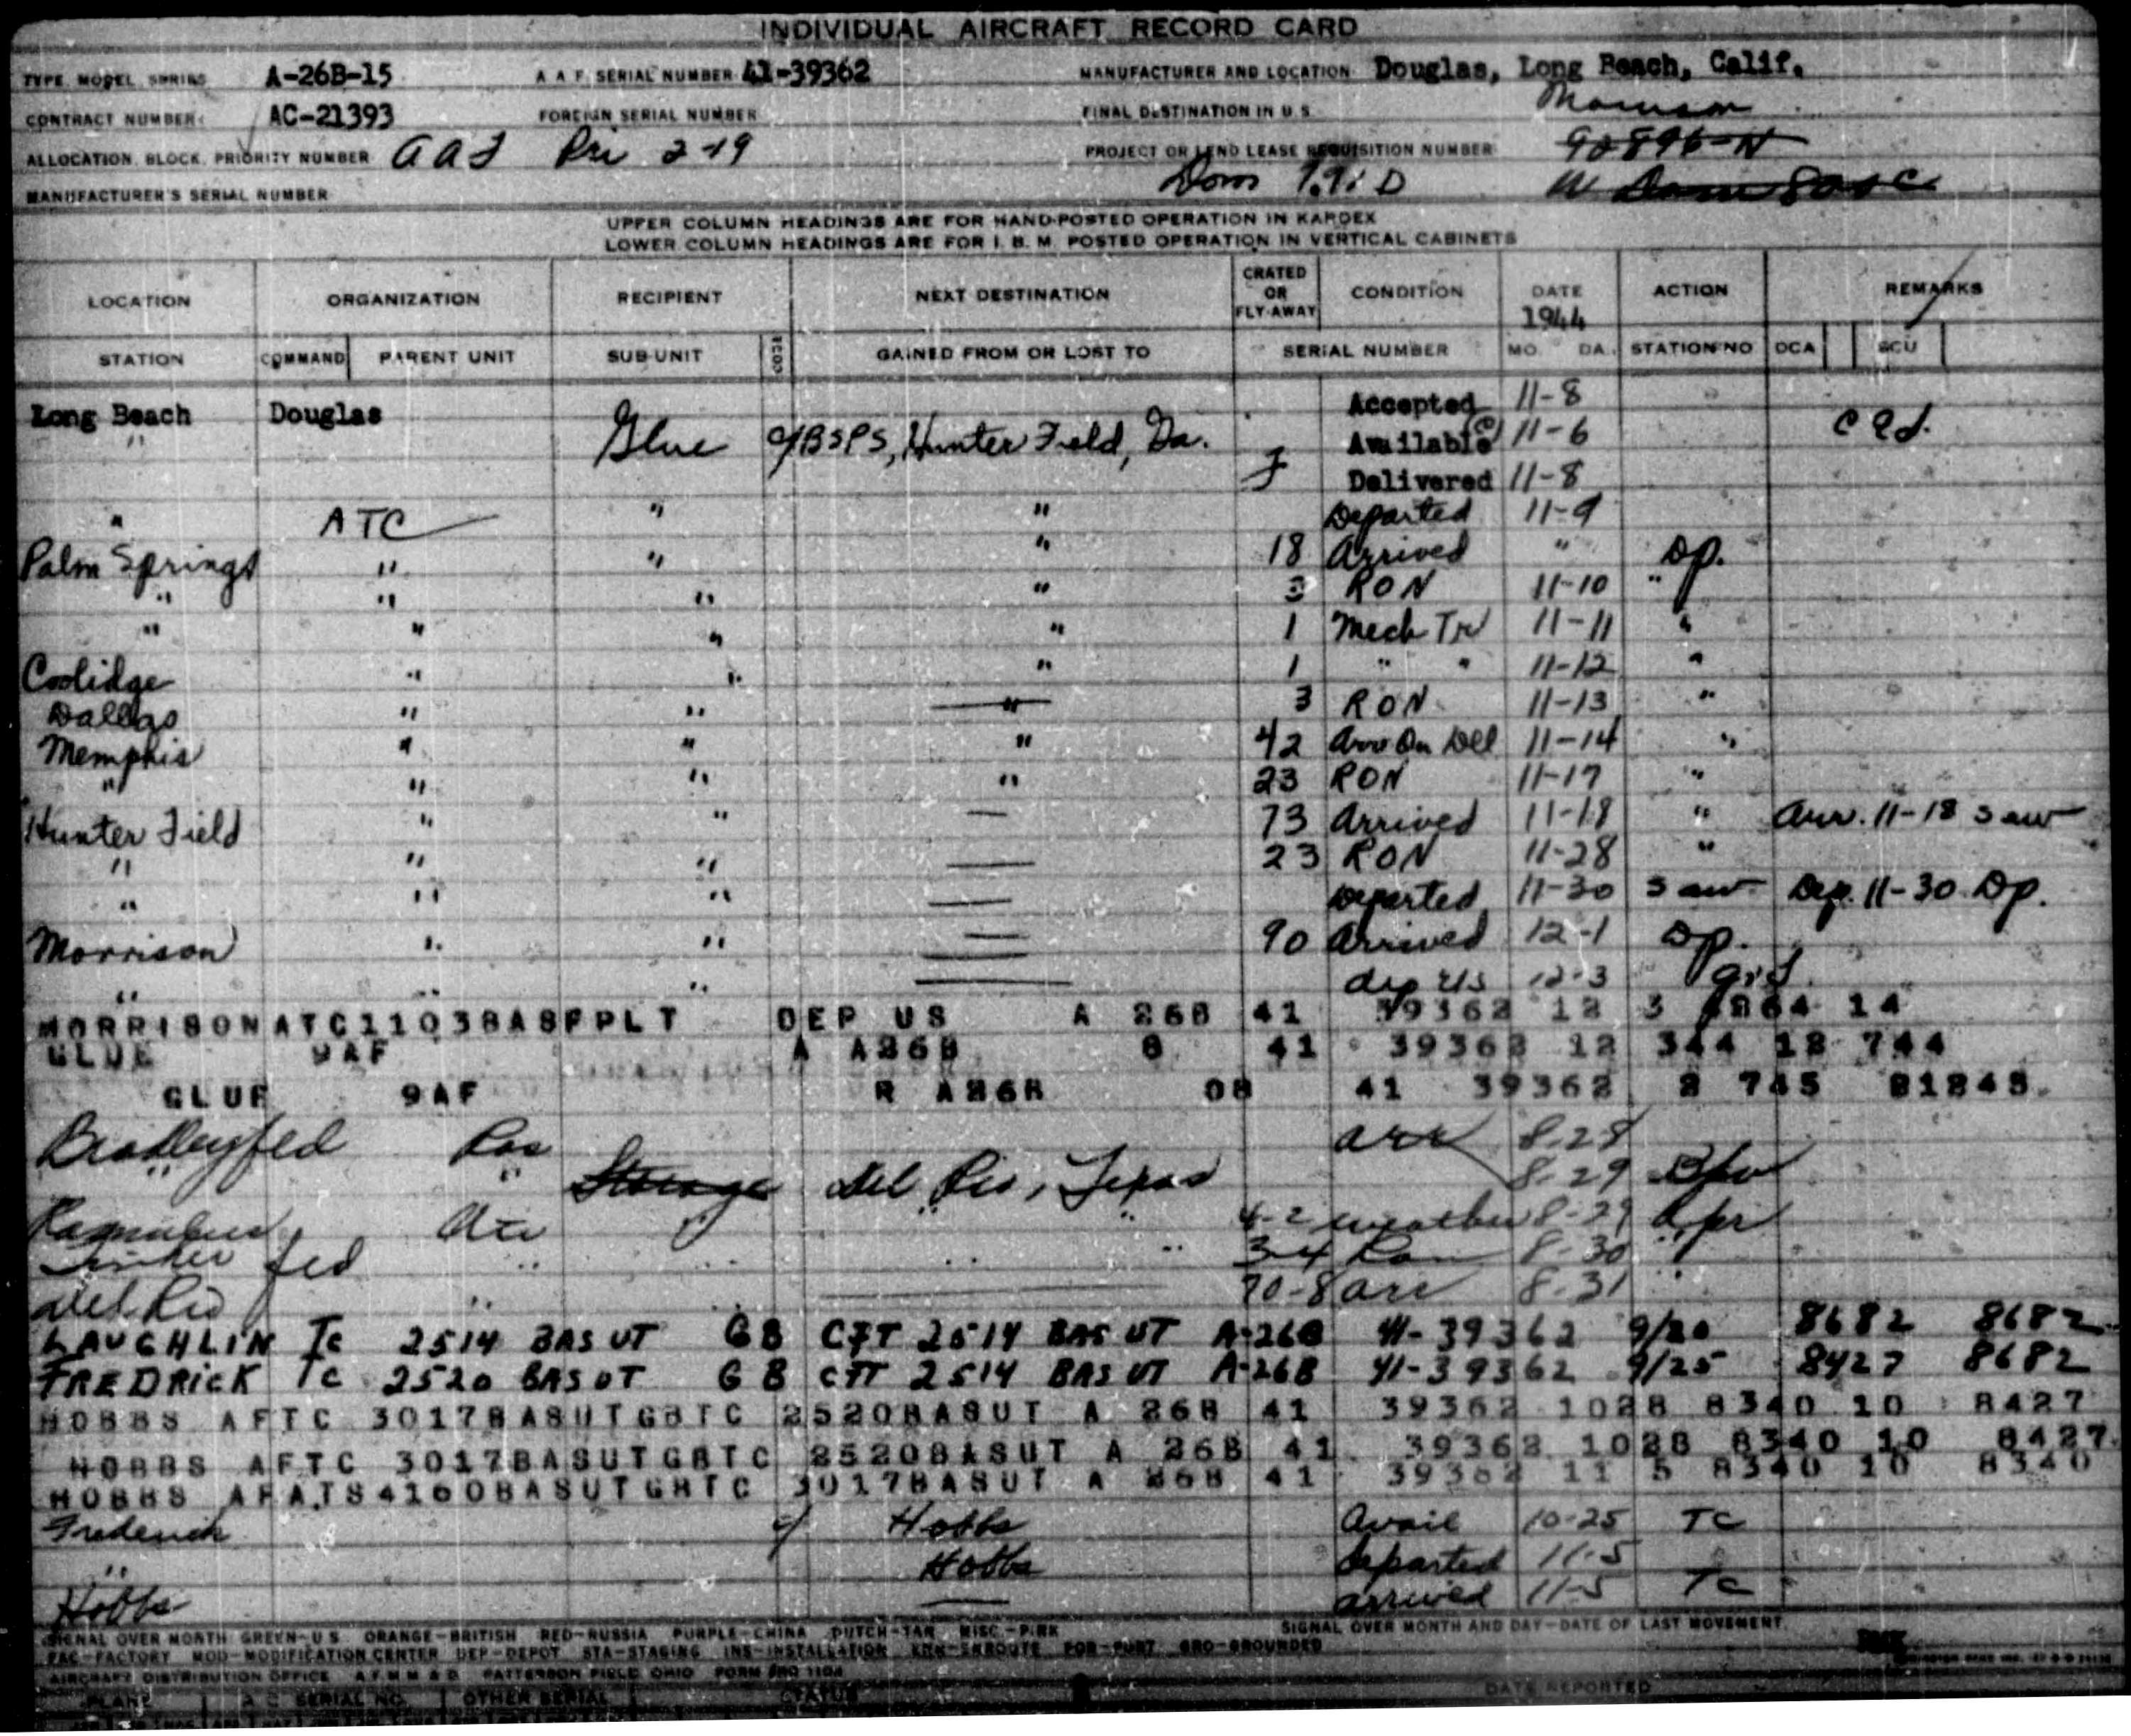 INDIVIDUAL AIRCRAFT RECORD CARD
TYPE, MODEL, SERIES A-26B-15 A A F SERIAL NUMBER 41-39362 MANUFACTURER AND LOCATION Douglas, Long Beach, Calif.
CONTRACT NUMBER: AC-21393 FOREIGN SERIAL NUMBER FINAL DESTINATION IN U S Morrison
ALLOCATION, BLOCK, PRIORITY NUMBER AAF Pri 2-19 PROJECT OR LEND LEASE REQUISITION NUMBER 90896-N
MANUFACTURER'S SERIAL NUMBER Dom
UPPER COLUMN HEADINGS ARE FOR HAND-POSTED OPERATION IN KARDEX
LOWER COLUMN HEADINGS ARE FOR I. B. M. POSTED OPERATION IN VERTICAL CABINETS
LOCATION ORGANIZATION RECIPIENT NEXT DESTINATION CRATED OR FLY-AWAY CONDITION DATE 1944 ACTION REMARKS
STATION COMMAND PARENT UNIT SUB-UNIT CODE GAINED FROM OR LOST TO SERIAL NUMBER MO. DA. STATION NO DCA SCU
Long Beach Douglas Accepted 11-8
" Glue BSPS, Hunter Field, Ga. Available 11-6
F Delivered 11-8
" ATC " " Departed 11-9
Palm Springs " " " 18 Arrived " Dp.
" " " " 3 RON 11-10 "
" " " " 1 Mech Tr 11-11 "
Coolidge " " " 1 " " 11-12 "
Dallas " " " 3 RON 11-13 "
Memphis " " " 42 11-14 "
" " " " 23 RON 11-17 "
Hunter Field " " — 73 Arrived 11-18 " Arr. 11-18
" " " — 23 RON 11-28 "
" " " — Departed 11-30 Dep. 11-30 Dp.
Morrison " " — 90 Arrived 12-1 Dp.
" " " — dep US 12-3
MORRISON ATC 1103BASFPLT DEP US A 26B 41 39362 12 3 14
GLUE 9AF A A26B 8 41 39362 12 344 12 744
GLUE 9AF R A26B 08 41 39362 2 745 81245
Bradley fld arr 8-28
" " Storage Del Rio, Texas 8-29
4-2 weather 8-29
fld " " " 3-4 8-30
Del Rio " " 70-8 arr 8-31 "
LAUGHLIN TC 2514 BAS UT GB CFT 2514 BAS UT A-26B 41-39362 9/20 8682 8682
FREDRICK TC 2520 BAS UT GB CFT 2514 BAS UT A-26B 41-39362 9/25 8427 8682
HOBBS AFTC 3017BASUTGBTC 2520BASUT A 26B 41 39362 1028 8340 10 8427
HOBBS AFTC 3017BASUTGBTC 2520BASUT A 26B 41 39362 1028 8340 10 8427
HOBBS AFATS4160BASUTGBTC 3017BASUT A 26B 41 39362 11 5 8340 10 8340
Frederick Hobbs Avail 10-25 TC
" Hobbs departed 11-5
Hobbs — arrived 11-5 TC
SIGNAL OVER MONTH GREEN-U S ORANGE-BRITISH RED-RUSSIA PURPLE-CHINA DUTCH-TAN MISC.-PINK SIGNAL OVER MONTH AND DAY-DATE OF LAST MOVEMENT
FAC-FACTORY MOD-MODIFICATION CENTER DEP-DEPOT STA-STAGING INS-INSTALLATION ENR-ENROUTE FOR-PORT GRO-GROUNDED
AIRCRAFT DISTRIBUTION OFFICE PATTERSON FIELD OHIO FORM
PLANE A. C. SERIAL NO. OTHER SERIAL STATUS DATE REPORTED